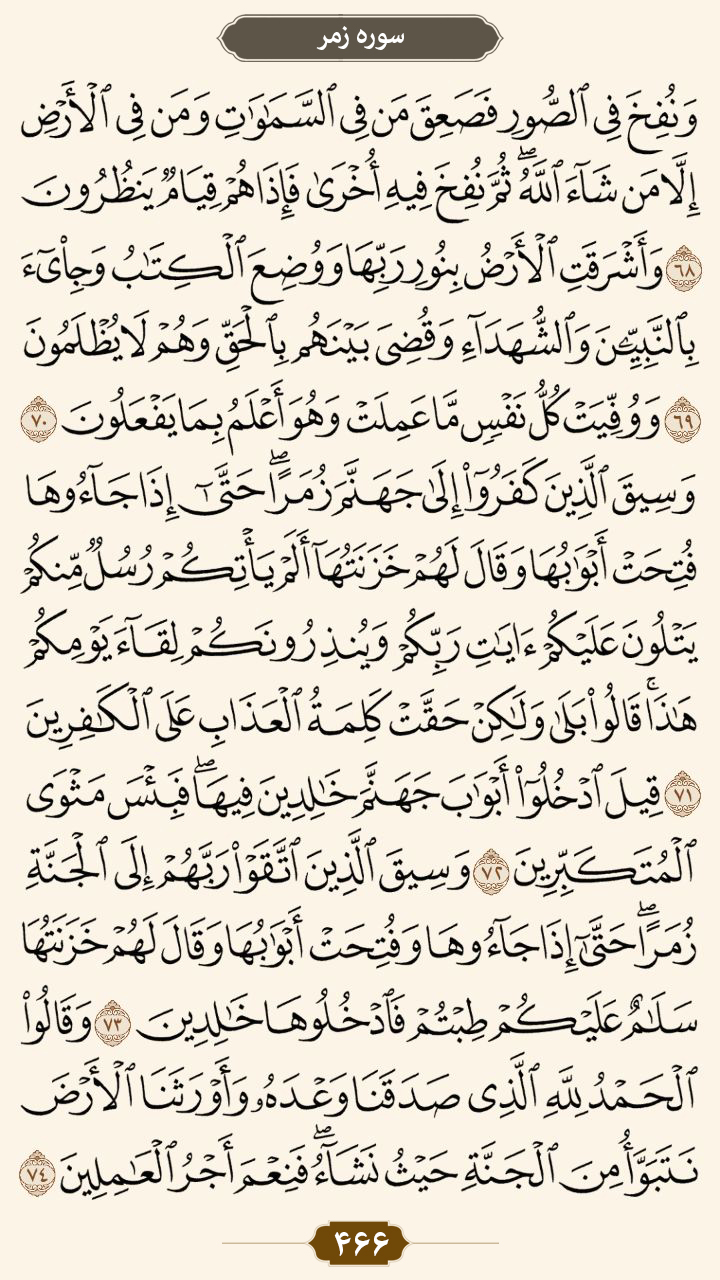 سوره زمر
وَنُفِخَ فِي ٱلصُّورِ فَصَعِقَ مَن فِي ٱلسَّمَٰوَٰتِ وَمَن فِي ٱلۡأَرۡضِ
إِلَّا مَن شَآءَ ٱللَّهُۖ ثُمَّ نُفِخَ فِيهِ أُخۡرَىٰ فَإِذَا هُمۡ قِيَامٞ يَنظُرُونَ
۶۸ وَأَشۡرَقَتِ ٱلۡأَرۡضُ بِنُورِ رَبِّهَا وَوُضِعَ ٱلۡكِتَٰبُ وَجِاْيٓءَ
بِٱلنَّبِيِّـۧنَ وَٱلشُّهَدَآءِ وَقُضِيَ بَيۡنَهُم بِٱلۡحَقِّ وَهُمۡ لَا يُظۡلَمُونَ
۶۹ وَوُفِّيَتۡ كُلُّ نَفۡسٖ مَّا عَمِلَتۡ وَهُوَ أَعۡلَمُ بِمَا يَفۡعَلُونَ ۷۰
وَسِيقَ ٱلَّذِينَ كَفَرُوٓاْ إِلَىٰ جَهَنَّمَ زُمَرًاۖ حَتَّىٰٓ إِذَا جَآءُوهَا
فُتِحَتۡ أَبۡوَٰبُهَا وَقَالَ لَهُمۡ خَزَنَتُهَآ أَلَمۡ يَأۡتِكُمۡ رُسُلٞ مِّنكُمۡ
يَتۡلُونَ عَلَيۡكُمۡ ءَايَٰتِ رَبِّكُمۡ وَيُنذِرُونَكُمۡ لِقَآءَ يَوۡمِكُمۡ
هَٰذَاۚ قَالُواْ بَلَىٰ وَلَٰكِنۡ حَقَّتۡ كَلِمَةُ ٱلۡعَذَابِ عَلَى ٱلۡكَٰفِرِينَ
۷۱ قِيلَ ٱدۡخُلُوٓاْ أَبۡوَٰبَ جَهَنَّمَ خَٰلِدِينَ فِيهَاۖ فَبِئۡسَ مَثۡوَى
ٱلۡمُتَكَبِّرِينَ ۷۲ وَسِيقَ ٱلَّذِينَ ٱتَّقَوۡاْ رَبَّهُمۡ إِلَى ٱلۡجَنَّةِ
زُمَرًاۖ حَتَّىٰٓ إِذَا جَآءُوهَا وَفُتِحَتۡ أَبۡوَٰبُهَا وَقَالَ لَهُمۡ خَزَنَتُهَا
سَلَٰمٌ عَلَيۡكُمۡ طِبۡتُمۡ فَٱدۡخُلُوهَا خَٰلِدِينَ ۷۳ وَقَالُواْ
ٱلۡحَمۡدُ لِلَّهِ ٱلَّذِي صَدَقَنَا وَعۡدَهُۥ وَأَوۡرَثَنَا ٱلۡأَرۡضَ
نَتَبَوَّأُ مِنَ ٱلۡجَنَّةِ حَيۡثُ نَشَآءُۖ فَنِعۡمَ أَجۡرُ ٱلۡعَٰمِلِينَ ۷۴
۴۶۶